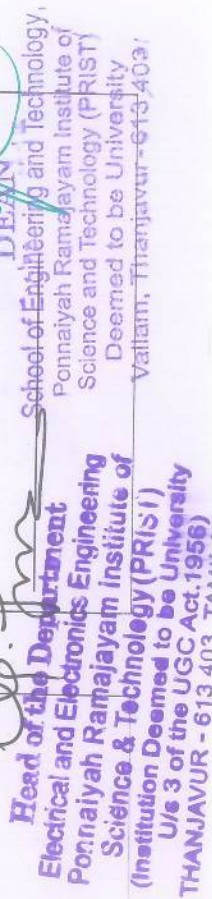 Head of the Department
Electrical and Electronics Engineering
Ponnaiyah Ramajayam Institute of
Science & Technology (PRIST)
(Institution Deemed to be University
U/s 3 of the UGC Act.1956)
THANJAVUR - 613 403
DEAN
School of Engineering and Technology,
Ponnaiyah Ramajayam Institute of
Science and Technology (PRIST)
Deemed to be University
Vallam, Thanjavur - 613 403